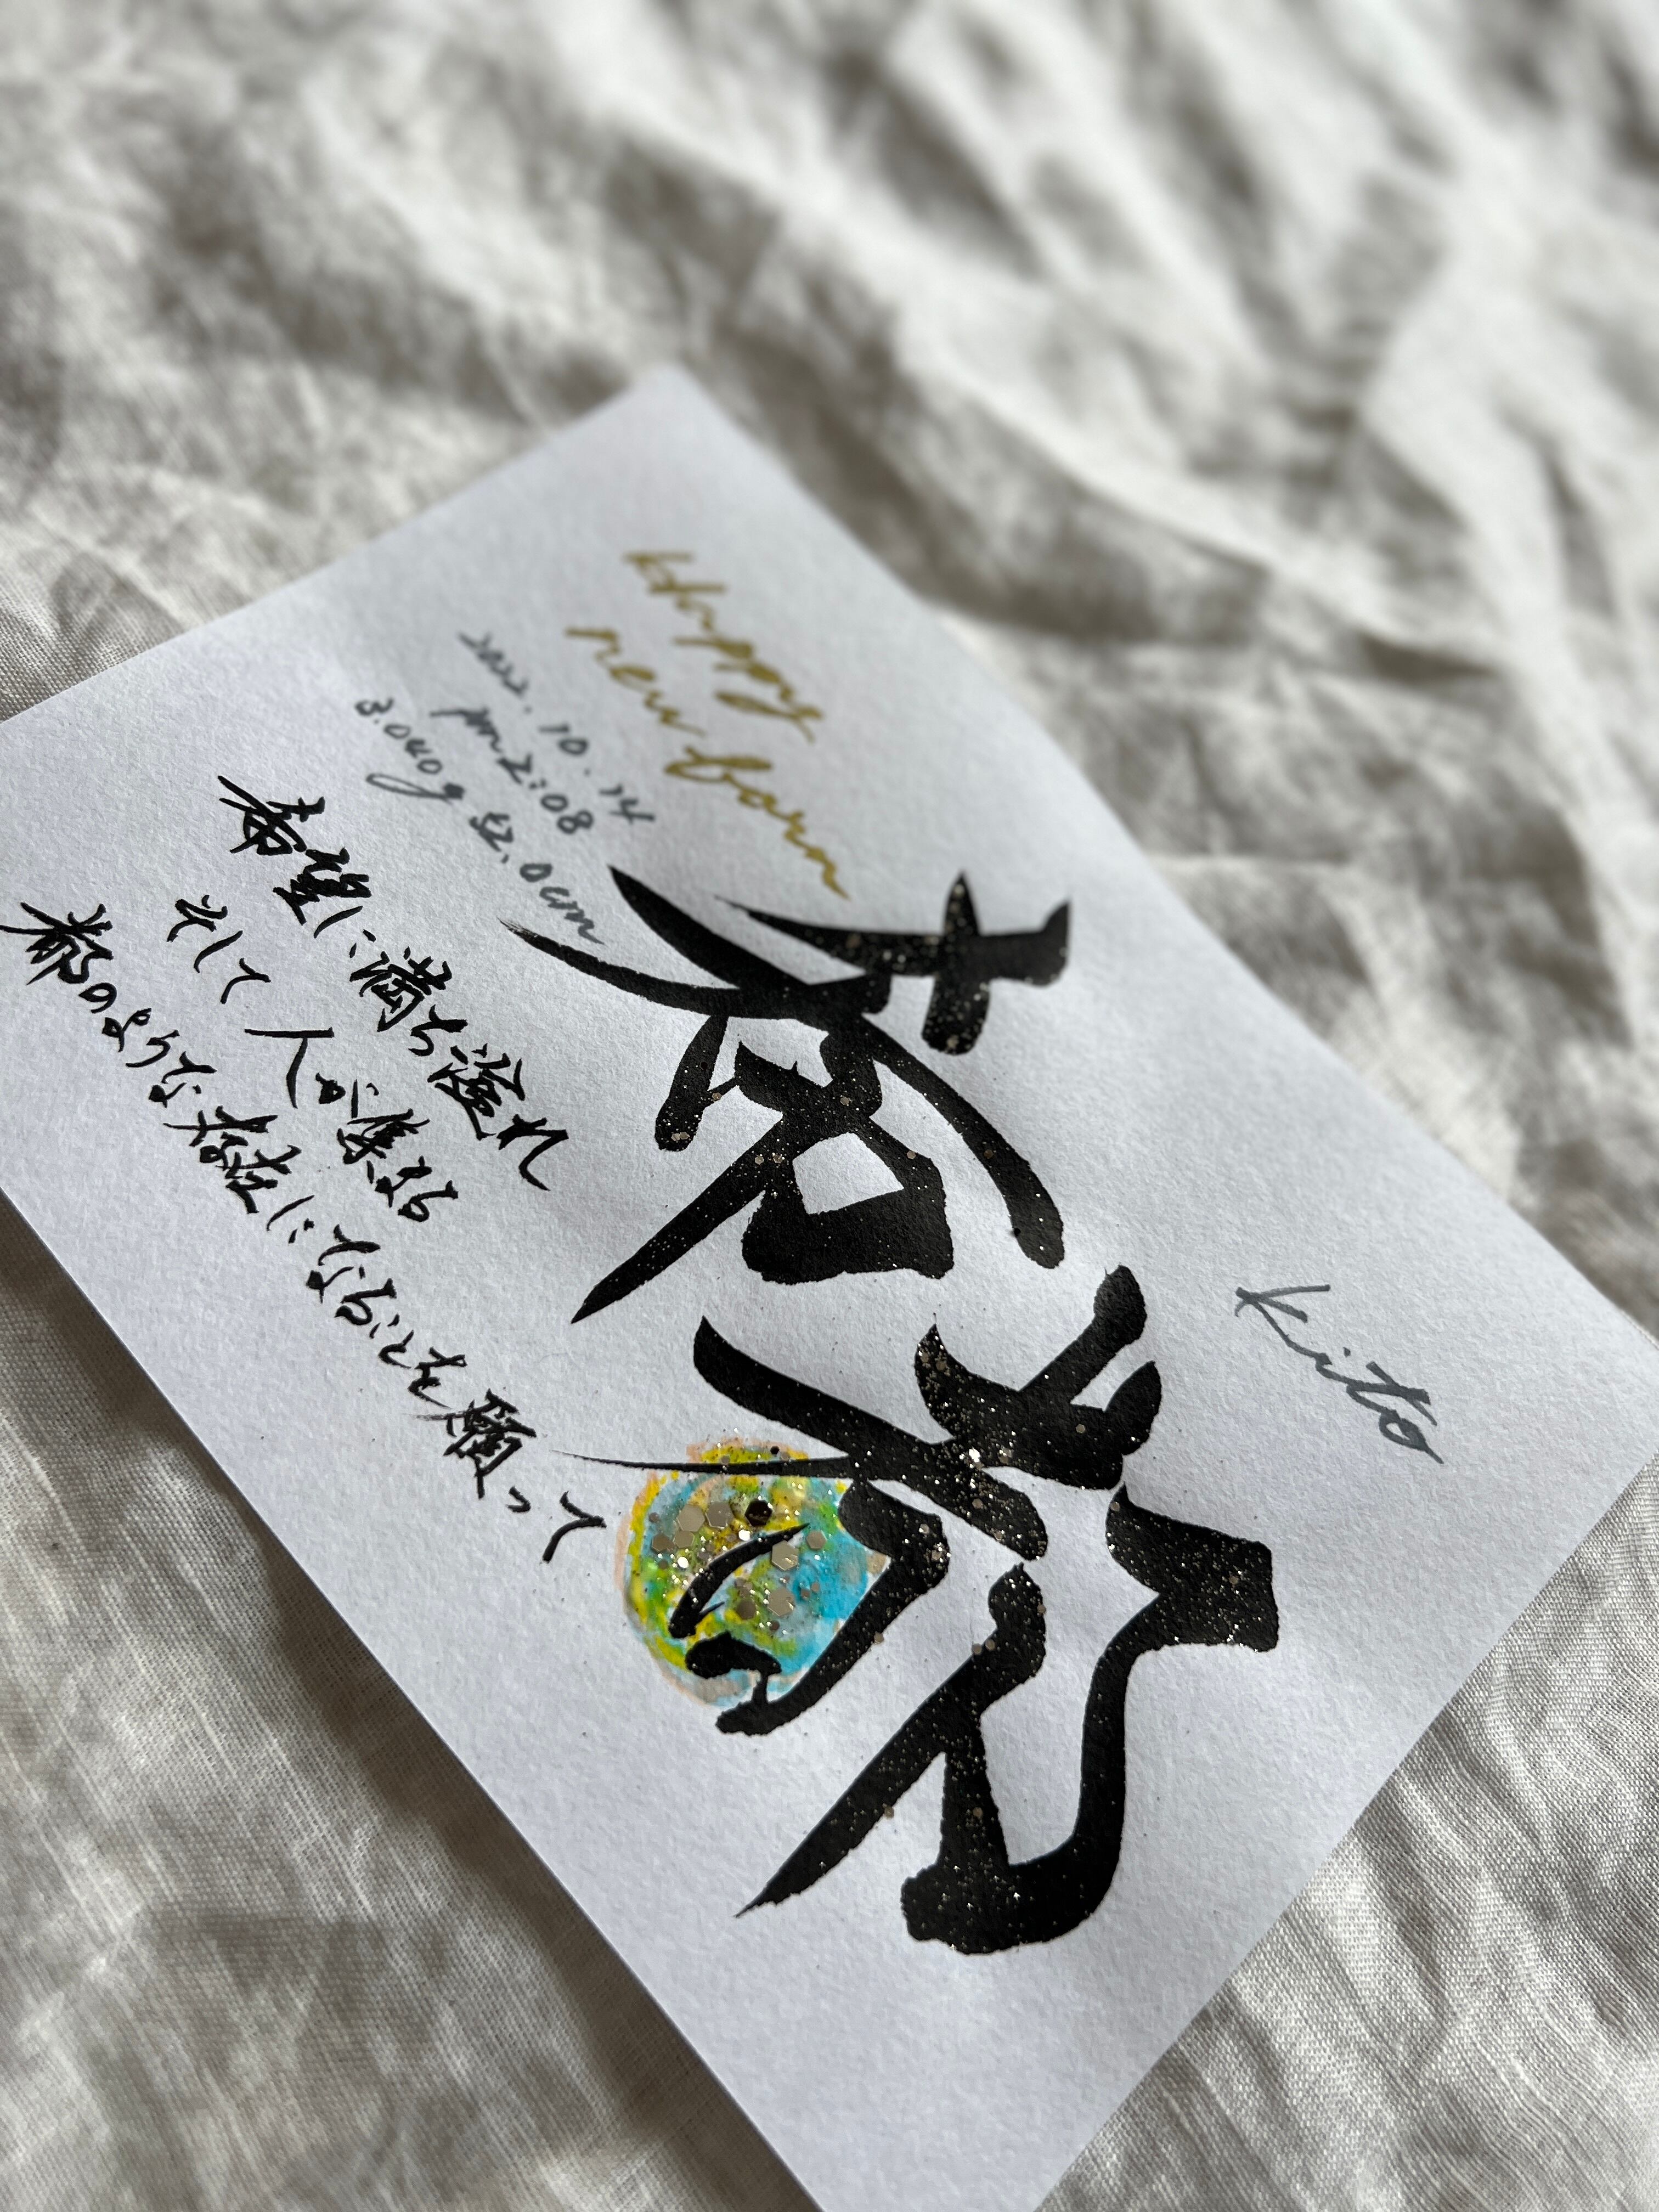 kito
希都
Happy
new born
2022.10.14
pm 2:08
3.040g 52.0cm
希望に満ち溢れ
そして人が集まる
都のような存在になることを願って